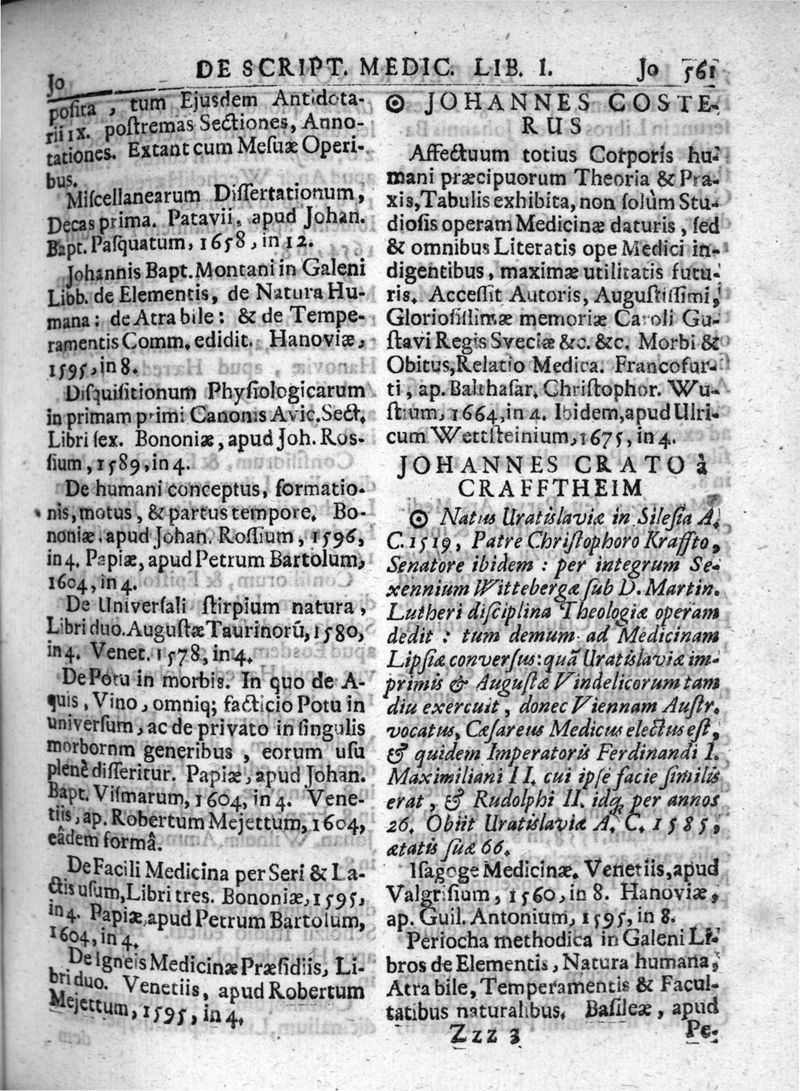 Jo DE SCRIPT. MEDIC. LIB. I. Jo 561
posita, tum Ejusdem Antidota-
rii IX. postremas Sectiones, Anno-
tationes. Extant cum Mesuæ Operi-
bus.
Miscellanearum Dissertationum,
Decas prima. Patavii, apud Johan.
Bapt. Pasquatum, 1658, in 12.
Johannis Bapt. Montani in Galeni
Libb. de Elementis, de Natura Hu-
mana: de Atra bile: & de Tempe-
ramentis Comm. edidit. Hanoviæ,
1595, in 8.
Disquisitionum Physiologicarum
in primam primi Canonis Avic. Sect.
Libri sex. Bononiæ, apud Joh. Ros-
sium, 1589, in 4.
De humani conceptus, formatio-
nis, motus, & partus tempore. Bo-
noniæ, apud Johan. Rossium, 1596,
in 4. Papiæ, apud Petrum Bartolum,
1604, in 4.
De Universali stirpium natura,
Libri duo. Augustæ Taurinorũ, 1580,
in 4. Venet. 1578, in 4.
De Potu in morbis. In quo de A-
quis, Vino, omniq; facticio Potu in
universum, ac de privato in singulis
morbornm generibus, eorum usu
plenè disseritur. Papiæ, apud Johan.
Bapt. Vismarum, 1604, in 4. Vene-
tiis, ap. Robertum Mejettum, 1604,
eadem formâ.
De Facili Medicina per Seri & La-
ctis usum, Libri tres. Bononiæ, 1595,
in 4. Papiæ, apud Petrum Bartolum,
1604, in 4.
De Igneis Medicinæ Præsidiis, Li-
bri duo. Venetiis, apud Robertum
Mejettum, 1595, in 4.
☉ JOHANNES COSTE-
RUS
Affectuum totius Corporis hu-
mani præcipuorum Theoria & Pra-
xis, Tabulis exhibita, non solùm Stu-
diosis operam Medicinæ daturis, sed
& omnibus Literatis ope Medici in-
digentibus, maximæ utilitatis futu-
ris. Accessit Autoris, Augustissimi,
Gloriosissimæ memoriæ Caroli Gu-
stavi Regis Sveciæ &c. &c. Morbi &
Obitus, Relatio Medica. Francofur-
ti, ap. Balthasar. Christophor. Wu-
stium, 1664, in 4. Ibidem, apud Ulri-
cum Wettsteinium, 1675, in 4.
JOHANNES CRATO à
CRAFFTHEIM
☉ Natus Uratislaviæ in Silesia A.
C. 1519, Patre Christophoro Kraffto,
Senatore ibidem: per integrum Se-
xennium Wittebergæ sub D. Martin.
Lutheri disciplina Theologiæ operam
dedit: tum demum ad Medicinam
Lipsiæ conversus: quã Uratislaviæ im-
primis & Augustæ Vindelicorum tam
diu exercuit, donec Viennam Austr.
vocatus, Cæsareus Medicus electus est,
& quidem Imperatoris Ferdinandi I.
Maximiliani II. cui ipse facie similis
erat, & Rudolphi II. idq; per annos
26. Obiit Uratislaviæ A. C. 1585,
ætatis suæ 66.
Isagoge Medicinæ. Venetiis, apud
Valgrisium, 1560, in 8. Hanoviæ,
ap. Guil. Antonium, 1595, in 8.
Periocha methodica in Galeni Li-
bros de Elementis, Natura humana,
Atra bile, Temperamentis & Facul-
tatibus naturalibus. Basileæ, apud
Zzz 3 Pe-